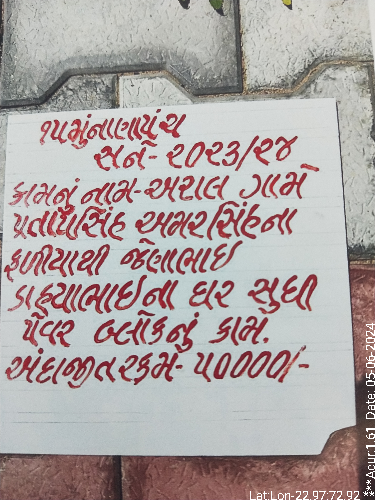 ૧૫મુંનાણાપંચ
સને- ૨૦૨૩/૨૪
કામનું નામ-અરાલ ગામે
પ્રતાપસિંહ અમરસિંહના
ફળીયાથી જેણાભાઈ
ડાહ્યાભાઈના ઘર સુધી
પેવર બ્લોકનું કામ.
અંદાજીતરકમ- ૫૦૦૦૦/-
Lat:Lon-22.97:72.92 ***Acur:1.61 Date: 05-06-2024